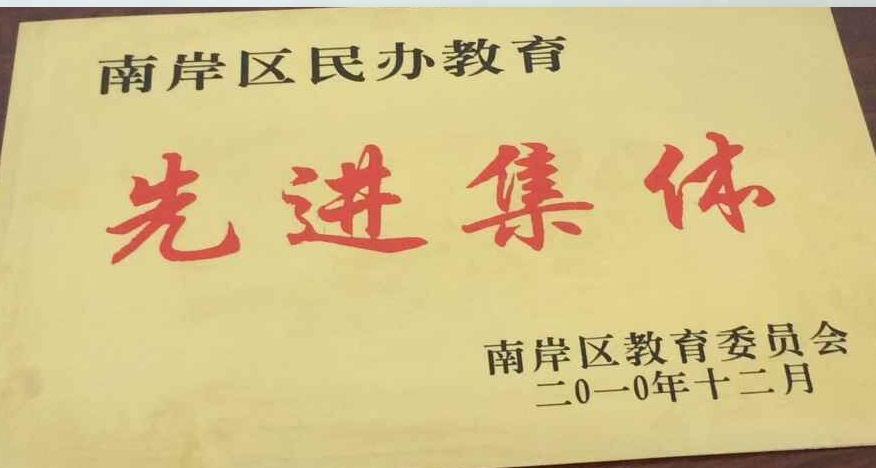 南岸区民办教育
先进集体
南岸区教育委员会
二0一0年十二月